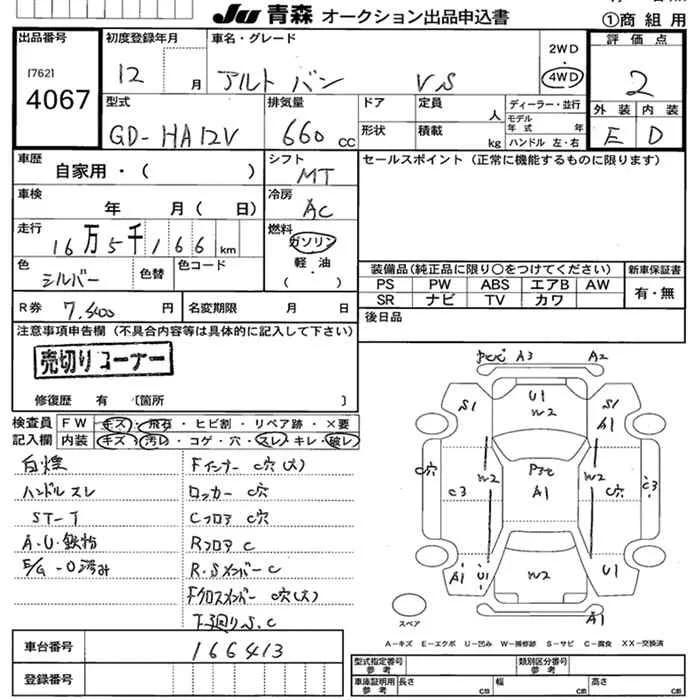 JU 青森 オークション出品申込書
①商 組 用
出品番号
[762]
4067
初度登録年月
12 月
車名・グレード
アルト バン VS
2WD
・
4WD
評価点
2
外装 内装
E D
型式
GD-HA12V
排気量
660 cc
ドア
形状
定員 人
積載 kg
ディーラー・並行
モデル年式 年
ハンドル 左・右
車歴
自家用・( )
シフト
MT
セールスポイント(正常に機能するものに限ります)
車検
年 月( 日)
冷房
AC
走行
16万5千166 km
燃料
ガソリン
軽・油
( )
色
シルバー
色替
色コード
装備品(純正品に限り○をつけてください)
PS PW ABS エアB AW
SR ナビ TV カワ
新車保証書
有・無
R券 7,400 円
名変期限 月 日
後日品
注意事項申告欄(不具合内容等は具体的に記入して下さい)
売切りコーナー
修復歴 有 〔箇所 〕
検査員記入欄
FW キズ・飛石・ヒビ割・リペア跡・×要
内装 キズ・汚レ・コゲ・穴・スレ・キレ・破レ
白煙
ハンドルスレ
ST-T
A・U・鉄粉
E/G-O滲み
Fインナー C穴(大)
ロッカー C穴
Cフロア C穴
Rフロア C
R・Sメンバー C
Fクロスメンバー C穴(大)
下廻りS、C
A3 A2
S1 U1 W2 S1 A1
C穴 C3 W2 A1 W2 C穴 C3
A1 U1 W2 U1
A1
スペア
A-キズ E-エクボ U-凹み W-補修跡 S-サビ C-腐食 XX-交換済
車台番号 166413
登録番号
型式指定番号 参考
類別区分番号 参考
車庫証明用 参考 長さ cm 幅 cm 高さ cm